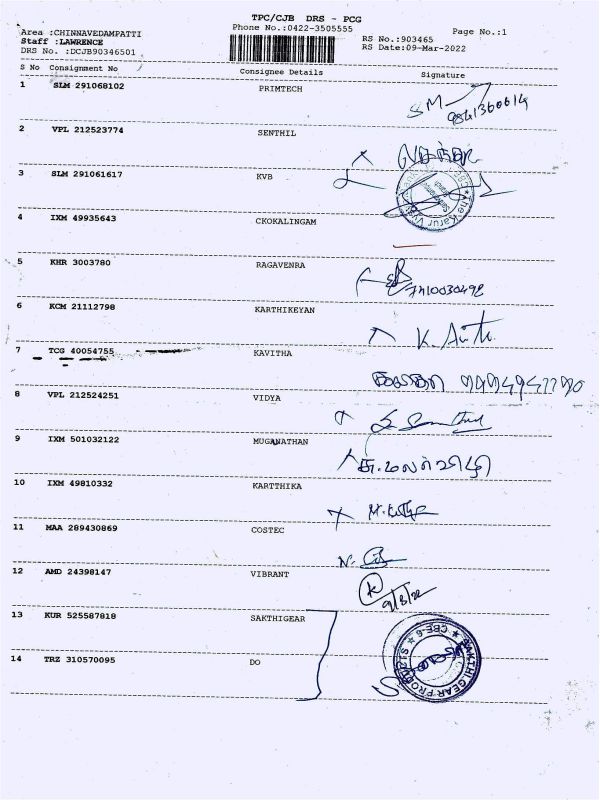 TPC/CJB DRS - PCG
Phone No.:0422-3505555
Page No.:1
Area :CHINNAVEDAMPATTI
RS No.:903465
Staff :LAWRENCE
RS Date:09-Mar-2022
DRS No. :DCJB90346501
S No Consignment No Consignee Details Signature
1 SLM 291068102 PRIMTECH
SM
2 VPL 212523774 SENTHIL
3 SLM 291061617 KVB
4 IXM 49935643 CKOKALINGAM
5 KHR 3003780 RAGAVENRA
7410030498
6 KCM 21112798 KARTHIKEYAN
7 TCG 40054755 KAVITHA
8 VPL 212524251 VIDYA
9 IXM 501032122 MUGANATHAN
10 IXM 49810332 KARTTHIKA
11 MAA 289430869 COSTEC
12 AMD 24398147 VIBRANT
K
9/3/22
13 KUR 525587818 SAKTHIGEAR
14 TRZ 310570095 DO
SAKTHI GEAR PRODUCTS
CBE-6